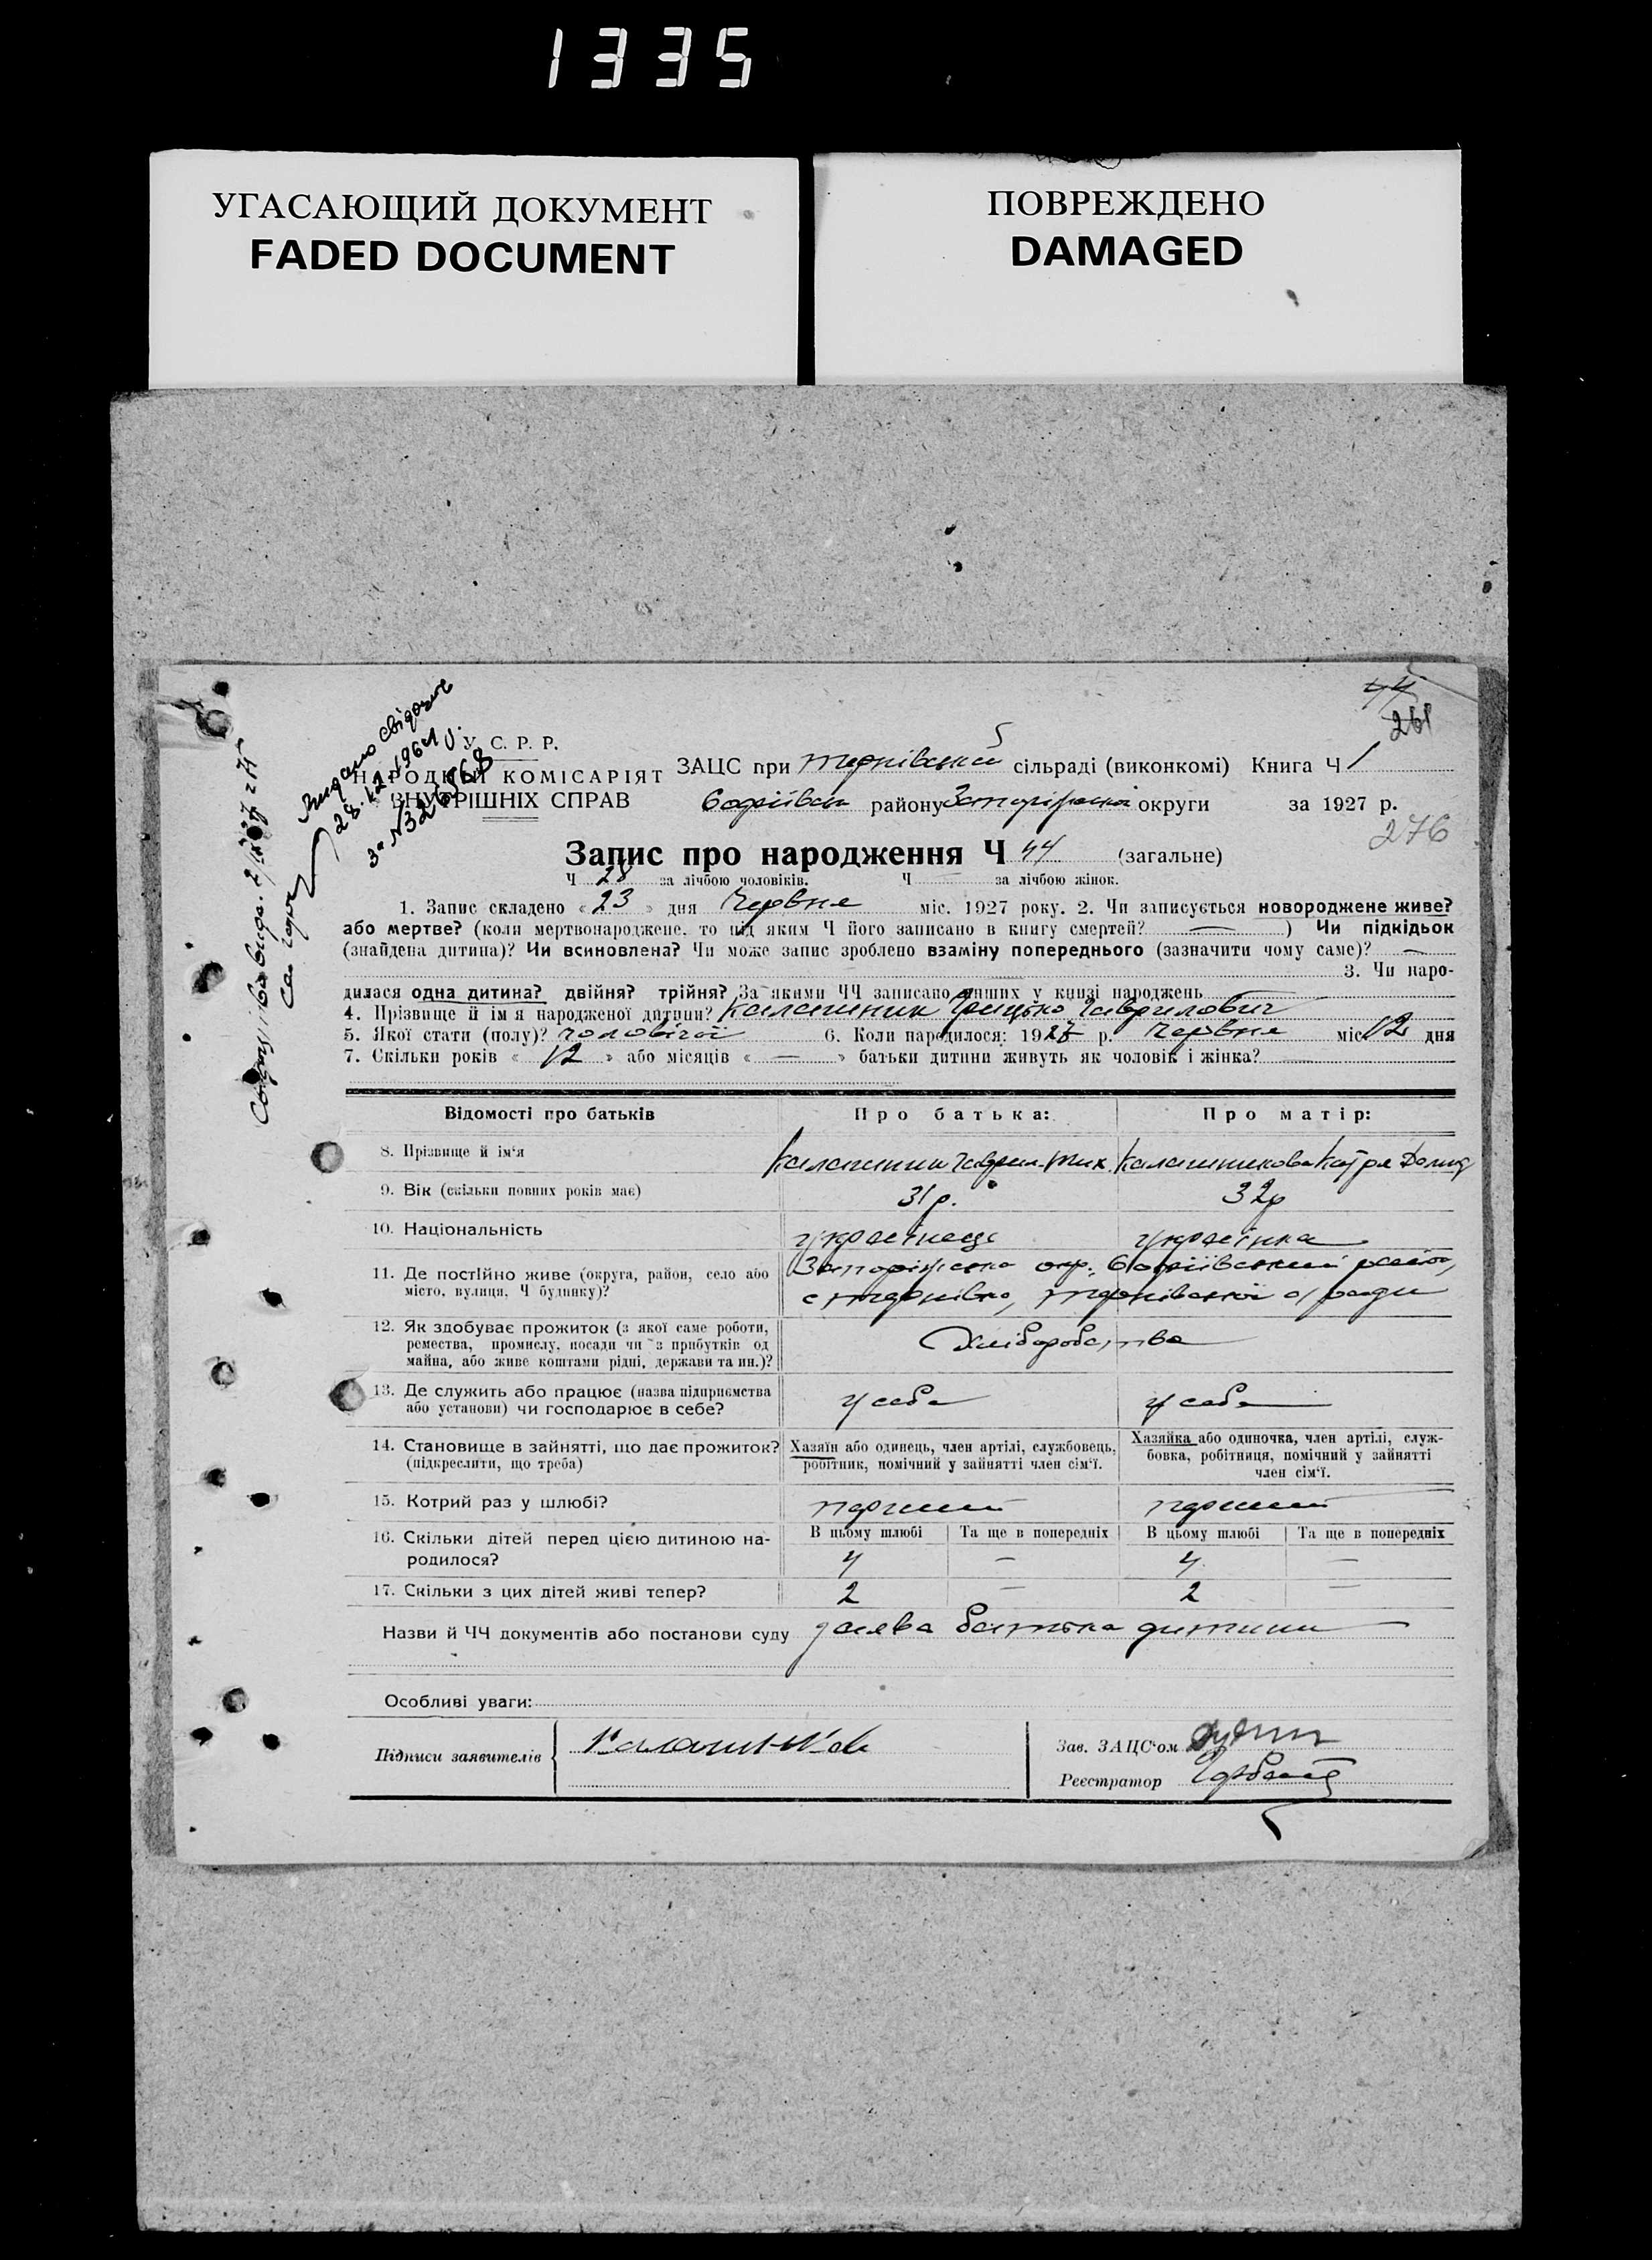 1335
УГАСАЮЩИЙ ДОКУМЕНТ
FADED DOCUMENT
ПОВРЕЖДЕНО
DAMAGED
44
261
Видано свідоцтво
28.12.1961 р.
За № 326568
У. С. Р. Р.
НАРОДНІЙ КОМІСАРІЯТ
ВНУТРІШНІХ СПРАВ
ЗАЦС при тернівській сільраді (виконкомі) Книга Ч 1
району Запоріжської округи за 1927 р.
276
Запис про народження Ч 44 (загальне)
Ч 28 за лічбою чоловіків. Ч за лічбою жінок.
1. Запис складено « 23 » дня Червня міс. 1927 року. 2. Чи записується новороджене живе?
або мертве? (коли мертвонароджене, то під яким Ч його записано в книгу смертей? — ) Чи підкідьок
(знайдена дитина)? Чи всиновлена? Чи може запис зроблено взаміну попереднього (зазначити чому саме)? —
3. Чи наро-
дилася одна дитина? двійня? трійня? За якими ЧЧ записано инших у книзі народжень
4. Прізвище й ім'я народженої дитини? Калашник Грицько Гаврилович
5. Якої стати (полу)? чоловічої 6. Коли народилося: 1927 р. Червня міс. 12 дня
7. Скільки років « 12 » або місяців « — » батьки дитини живуть як чоловік і жінка?
Відомості про батьків Про батька: Про матір:
8. Прізвище й ім'я Калашник Гаврил. Тих. Калашникова Катря
9. Вік (скільки повних років має) 31 р. 32 р
10. Національність українець українка
11. Де постійно живе (округа, район, село або Запоріжська окр., район,
місто, вулиця, Ч будинку)? с тернівка, тернівської с/ ради
12. Як здобуває прожиток (з якої саме роботи, Хліборобство
ремества, промислу, посади чи з прибутків од
майна, або живе коштами рідні, держави та ин.)?
13. Де служить або працює (назва підприємства у себе у себе
або установи) чи господарює в себе?
14. Становище в зайнятті, що дає прожиток? Хазяїн або одинець, член артілі, службовець, Хазяйка або одиночка, член артілі, служ-
(підкреслити, що треба) робітник, помічний у зайнятті член сім'ї. бовка, робітниця, помічний у зайнятті
член сім'ї.
15. Котрий раз у шлюбі? перший перший
16. Скільки дітей перед цією дитиною на- В цьому шлюбі Та ще в попередніх В цьому шлюбі Та ще в попередніх
родилося? 4 — 4 —
17. Скільки з цих дітей живі тепер? 2 — 2 —
Назви й ЧЧ документів або постанови суду заява батька дитини
Особливі уваги:
Підписи заявителів
Зав. ЗАЦС'ом
Реєстратор